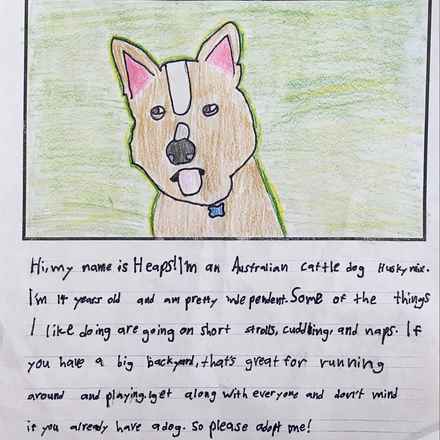 Hi, my name is Heaps! I'm an Australian cattle dog Husky mix.
I'm 14 years old and am pretty independent. Some of the things
I like doing are going on short strolls, cuddling, and naps. If
you have a big backyard, that's great for running
around and playing. I get along with everyone and don't mind
if you already have a dog. So please adopt me!